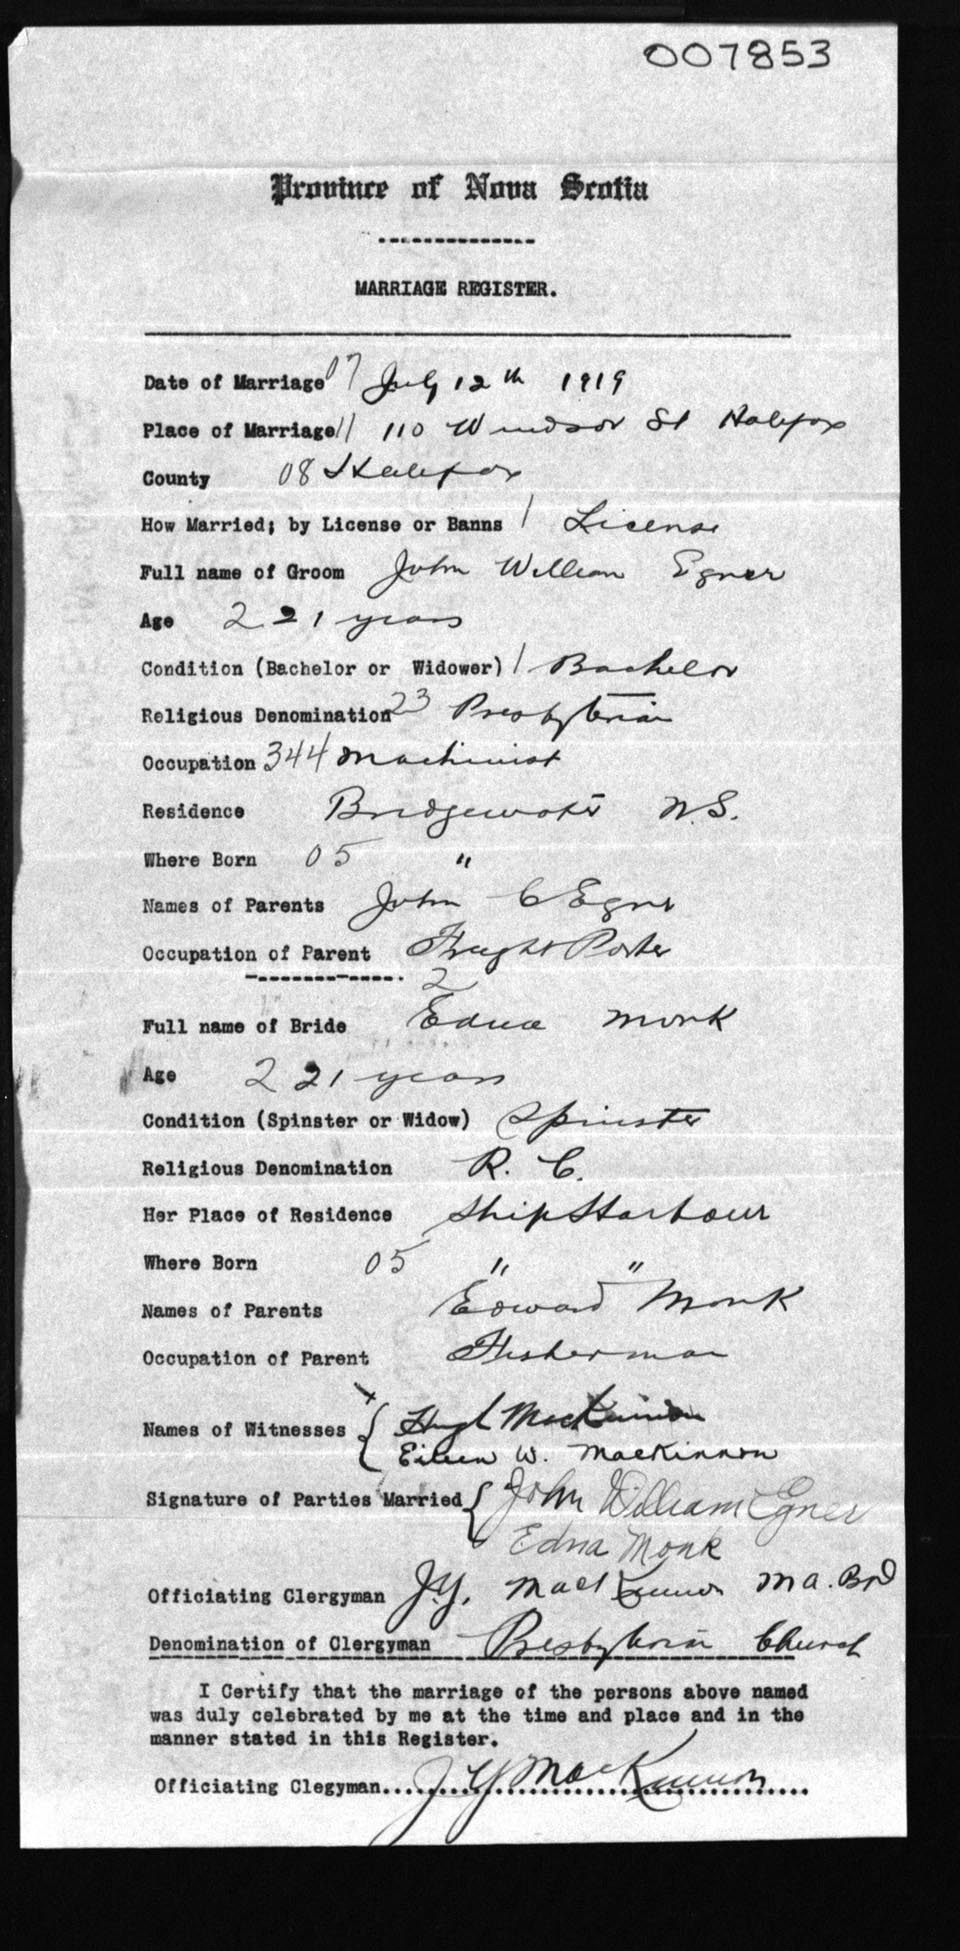 007853
Province of Nova Scotia
MARRIAGE REGISTER.
Date of Marriage 07 July 12th 1919
Place of Marriage 11 110 Windsor St Halifax
County 08 Halifax
How Married; by License or Banns 1 License
Full name of Groom John William Egner
Age 2 21 years
Condition (Bachelor or Widower) 1 Bachelor
Religious Denomination 23 Presbyterian
Occupation 344 Machinist
Residence Bridgewater N.S.
Where Born 05 "
Names of Parents John C Egner
Occupation of Parent Freight Porter
2
Full name of Bride Edna Monk
Age 2 21 years
Condition (Spinster or Widow) Spinster
Religious Denomination R. C.
Her Place of Residence Ship Harbour
Where Born 05 " "
Names of Parents Edward Monk
Occupation of Parent Fisherman
Names of Witnesses { Hugh MacKinnon
Eileen W. MacKinnon
Signature of Parties Married { John William Egner
Edna Monk
Officiating Clergyman J.Y. MacKinnon M A. BD
Denomination of Clergyman Presbyterian Church
I Certify that the marriage of the persons above named
was duly celebrated by me at the time and place and in the
manner stated in this Register.
Officiating Clegyman.... J Y MacKinnon